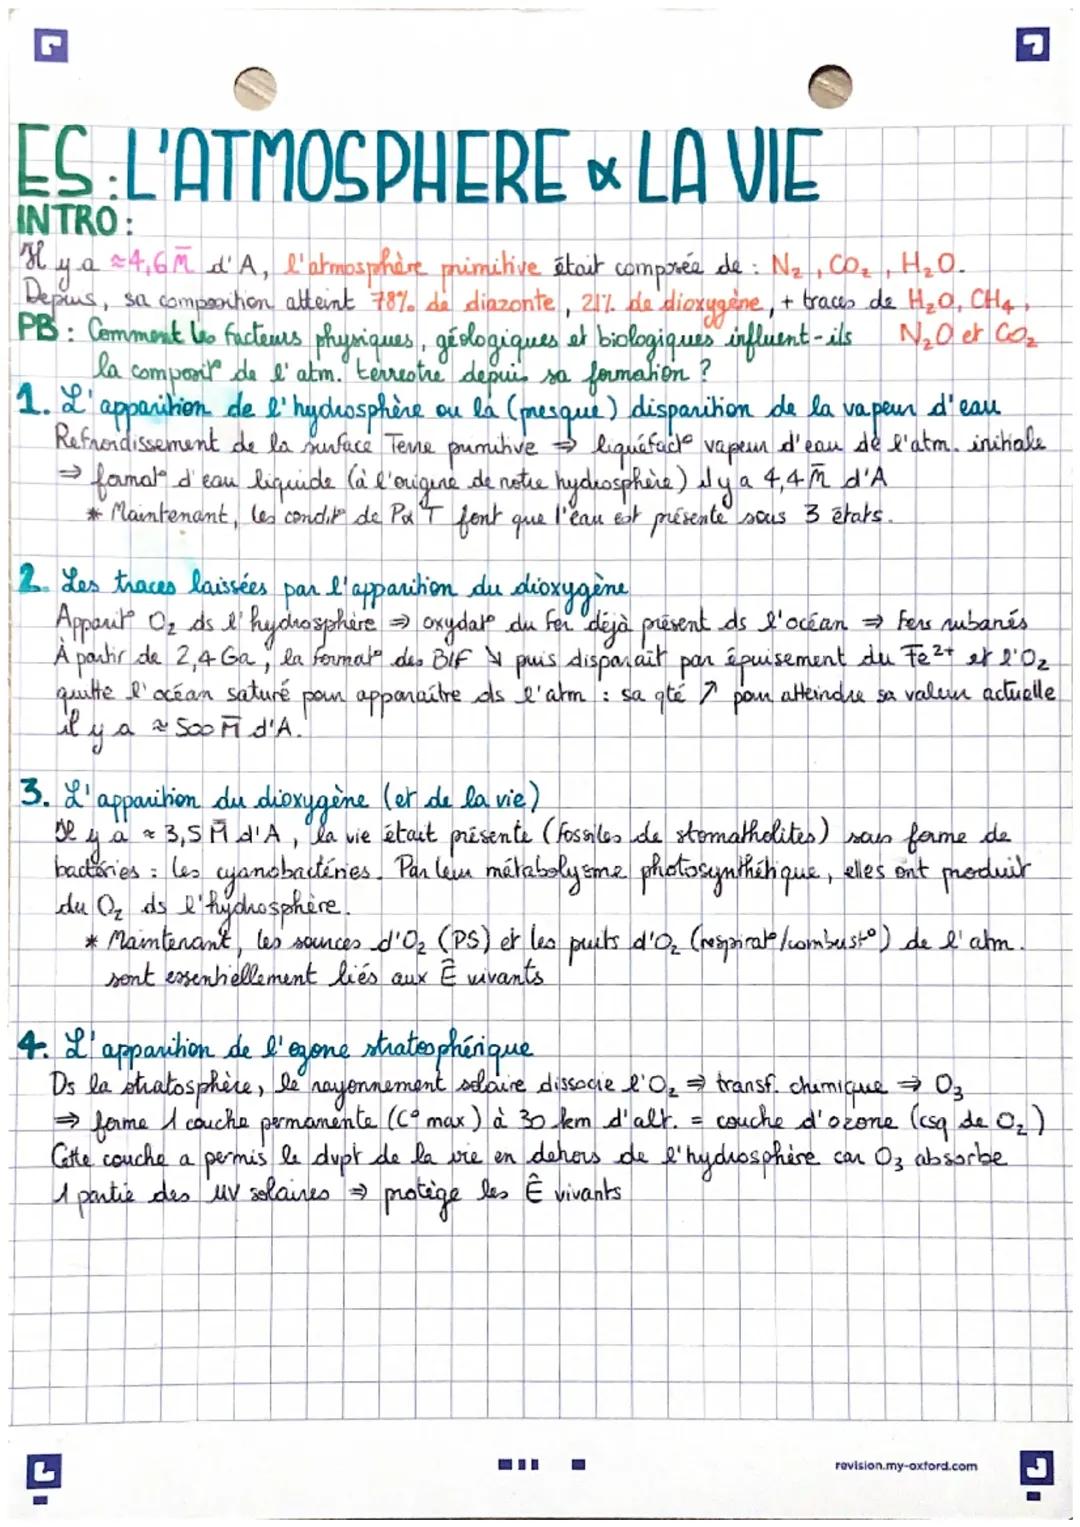 ES: L'ATMOSPHERE & LA VIE
INTRO:
Il y a ≈4,6 M̄ d'A, l'atmosphère primitive était composée de : N₂, CO₂, H₂O.
Depuis, sa composition atteint 78% de diazonte, 21% de dioxygène, + traces de H₂O, CH₄,
N₂O et CO₂
PB : Comment les facteurs physiques, géologiques et biologiques influent-ils
la composit° de l'atm. terrestre depuis sa formation ?
1. L'apparition de l'hydrosphère ou la (presque) disparition de la vapeur d'eau
Refroidissement de la surface Terre primitive ⇒ liquéfact° vapeur d'eau de l'atm. initiale
⇒ format° d'eau liquide (à l'origine de notre hydrosphère) il y a 4,4 M̄ d'A
* Maintenant, les condit° de P& T font que l'eau est présente sous 3 états.
2. Les traces laissées par l'apparition du dioxygène
Apparit° O₂ ds l'hydrosphère ⇒ oxydat° du fer déjà présent ds l'océan ⇒ Fers rubanés
À partir de 2,4 Ga, la format° des BIF ↘ puis disparaît par épuisement du Fe²⁺ et l'O₂
quitte l'océan saturé pour apparaître ds l'atm : sa qté ↗ pour atteindre sa valeur actuelle
il y a ≈ 500 M̄ d'A.
3. L'apparition du dioxygène (et de la vie)
Il y a ≈ 3,5 M̄ d'A, la vie était présente (fossiles de stomatholites) sous forme de
bactéries : les cyanobactéries. Par leur métabolysme photosynthétique, elles ont produit
du O₂ ds l'hydrosphère.
* Maintenant, les sources d'O₂ (PS) et les puits d'O₂ (respirat°/combust°) de l'atm.
sont essentiellement liés aux Ê vivants
4. L'apparition de l'ozone stratosphérique
Ds la stratosphère, le rayonnement solaire dissocie l'O₂ ⇒ transf. chimique ⇒ O₃
⇒ forme 1 couche permanente (C° max) à 30 km d'alt. = couche d'ozone (csq de O₂)
Cette couche a permis le dvpt de la vie en dehors de l'hydrosphère car O₃ absorbe
1 partie des UV solaires ⇒ protège les Ê vivants
revision.my-oxford.com